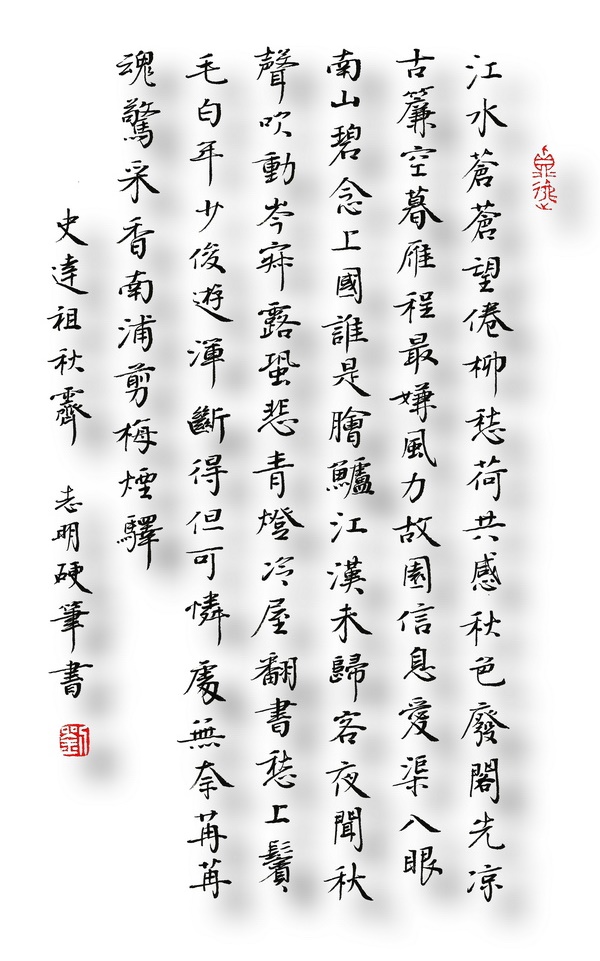 江水蒼蒼望倦柳愁荷共感秋色廢閣先凉
古簾空暮雁程最嫌風力故園信息愛渠入眼
南山碧念上國誰是膾鱸江漢未歸客夜聞秋
聲吹動岑寂露蛩悲青燈冷屋翻書愁上鬢
毛白年少俊遊渾斷得但可憐處無奈苒苒
魂驚采香南浦剪梅煙驛
史達祖秋霽 志明硬筆書
劉